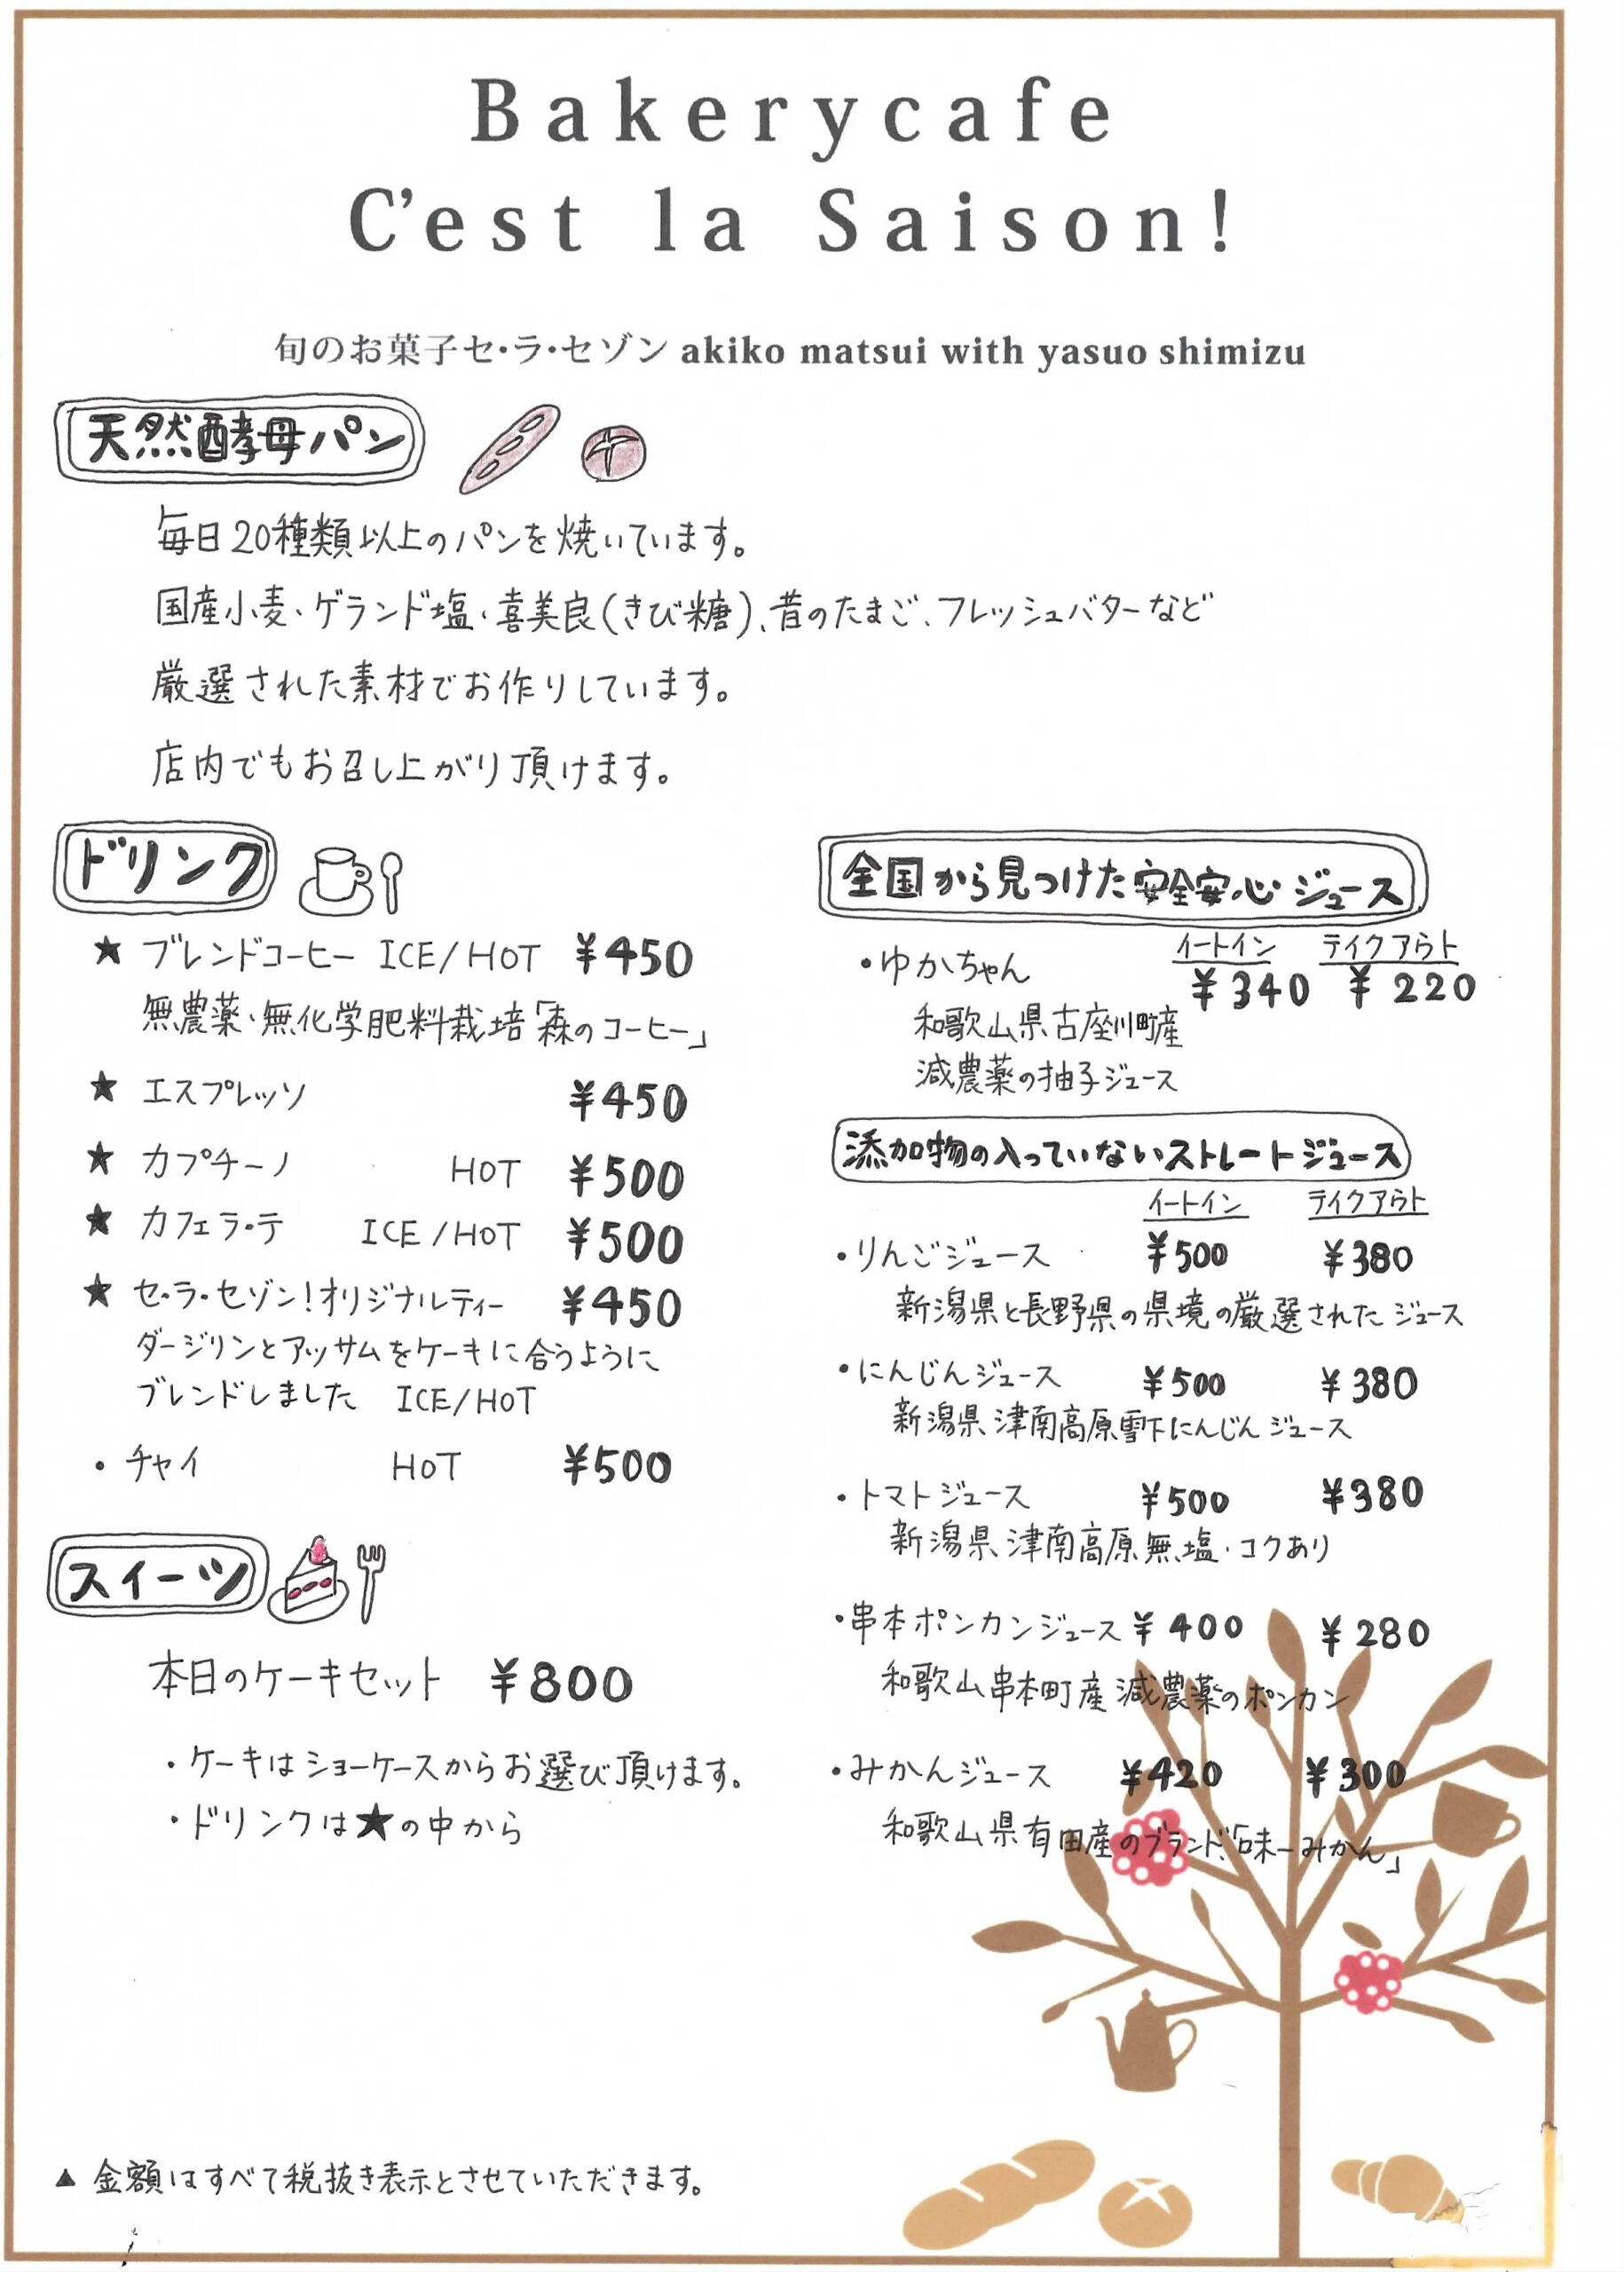 Bakerycafe
C'est la Saison!
旬のお菓子セ・ラ・セゾン akiko matsui with yasuo shimizu
天然酵母パン
毎日20種類以上のパンを焼いています。
国産小麦、ゲランド塩、喜美良(きび糖)、昔のたまご、フレッシュバターなど
厳選された素材でお作りしています。
店内でもお召し上がり頂けます。
ドリンク
★ ブレンドコーヒー ICE/HOT ¥450
無農薬・無化学肥料栽培「森のコーヒー」
★ エスプレッソ ¥450
★ カプチーノ HOT ¥500
★ カフェラ・テ ICE/HOT ¥500
★ セ・ラ・セゾン!オリジナルティー ¥450
ダージリンとアッサムをケーキに合うように
ブレンドしました ICE/HOT
・チャイ HOT ¥500
スイーツ
本日のケーキセット ¥800
・ケーキはショーケースからお選び頂けます。
・ドリンクは★の中から
全国から見つけた安全安心ジュース
イートイン テイクアウト
・ゆかちゃん ¥340 ¥220
和歌山県古座川町産
減農薬の柚子ジュース
添加物の入っていないストレートジュース
イートイン テイクアウト
・りんごジュース ¥500 ¥380
新潟県と長野県の県境の厳選されたジュース
・にんじんジュース ¥500 ¥380
新潟県津南高原雪下にんじんジュース
・トマトジュース ¥500 ¥380
新潟県津南高原無塩・コクあり
・串本ポンカンジュース ¥400 ¥280
和歌山串本町産減農薬のポンカン
・みかんジュース ¥420 ¥300
和歌山県有田産のブランド「味一みかん」
▲ 金額はすべて税抜き表示とさせていただきます。